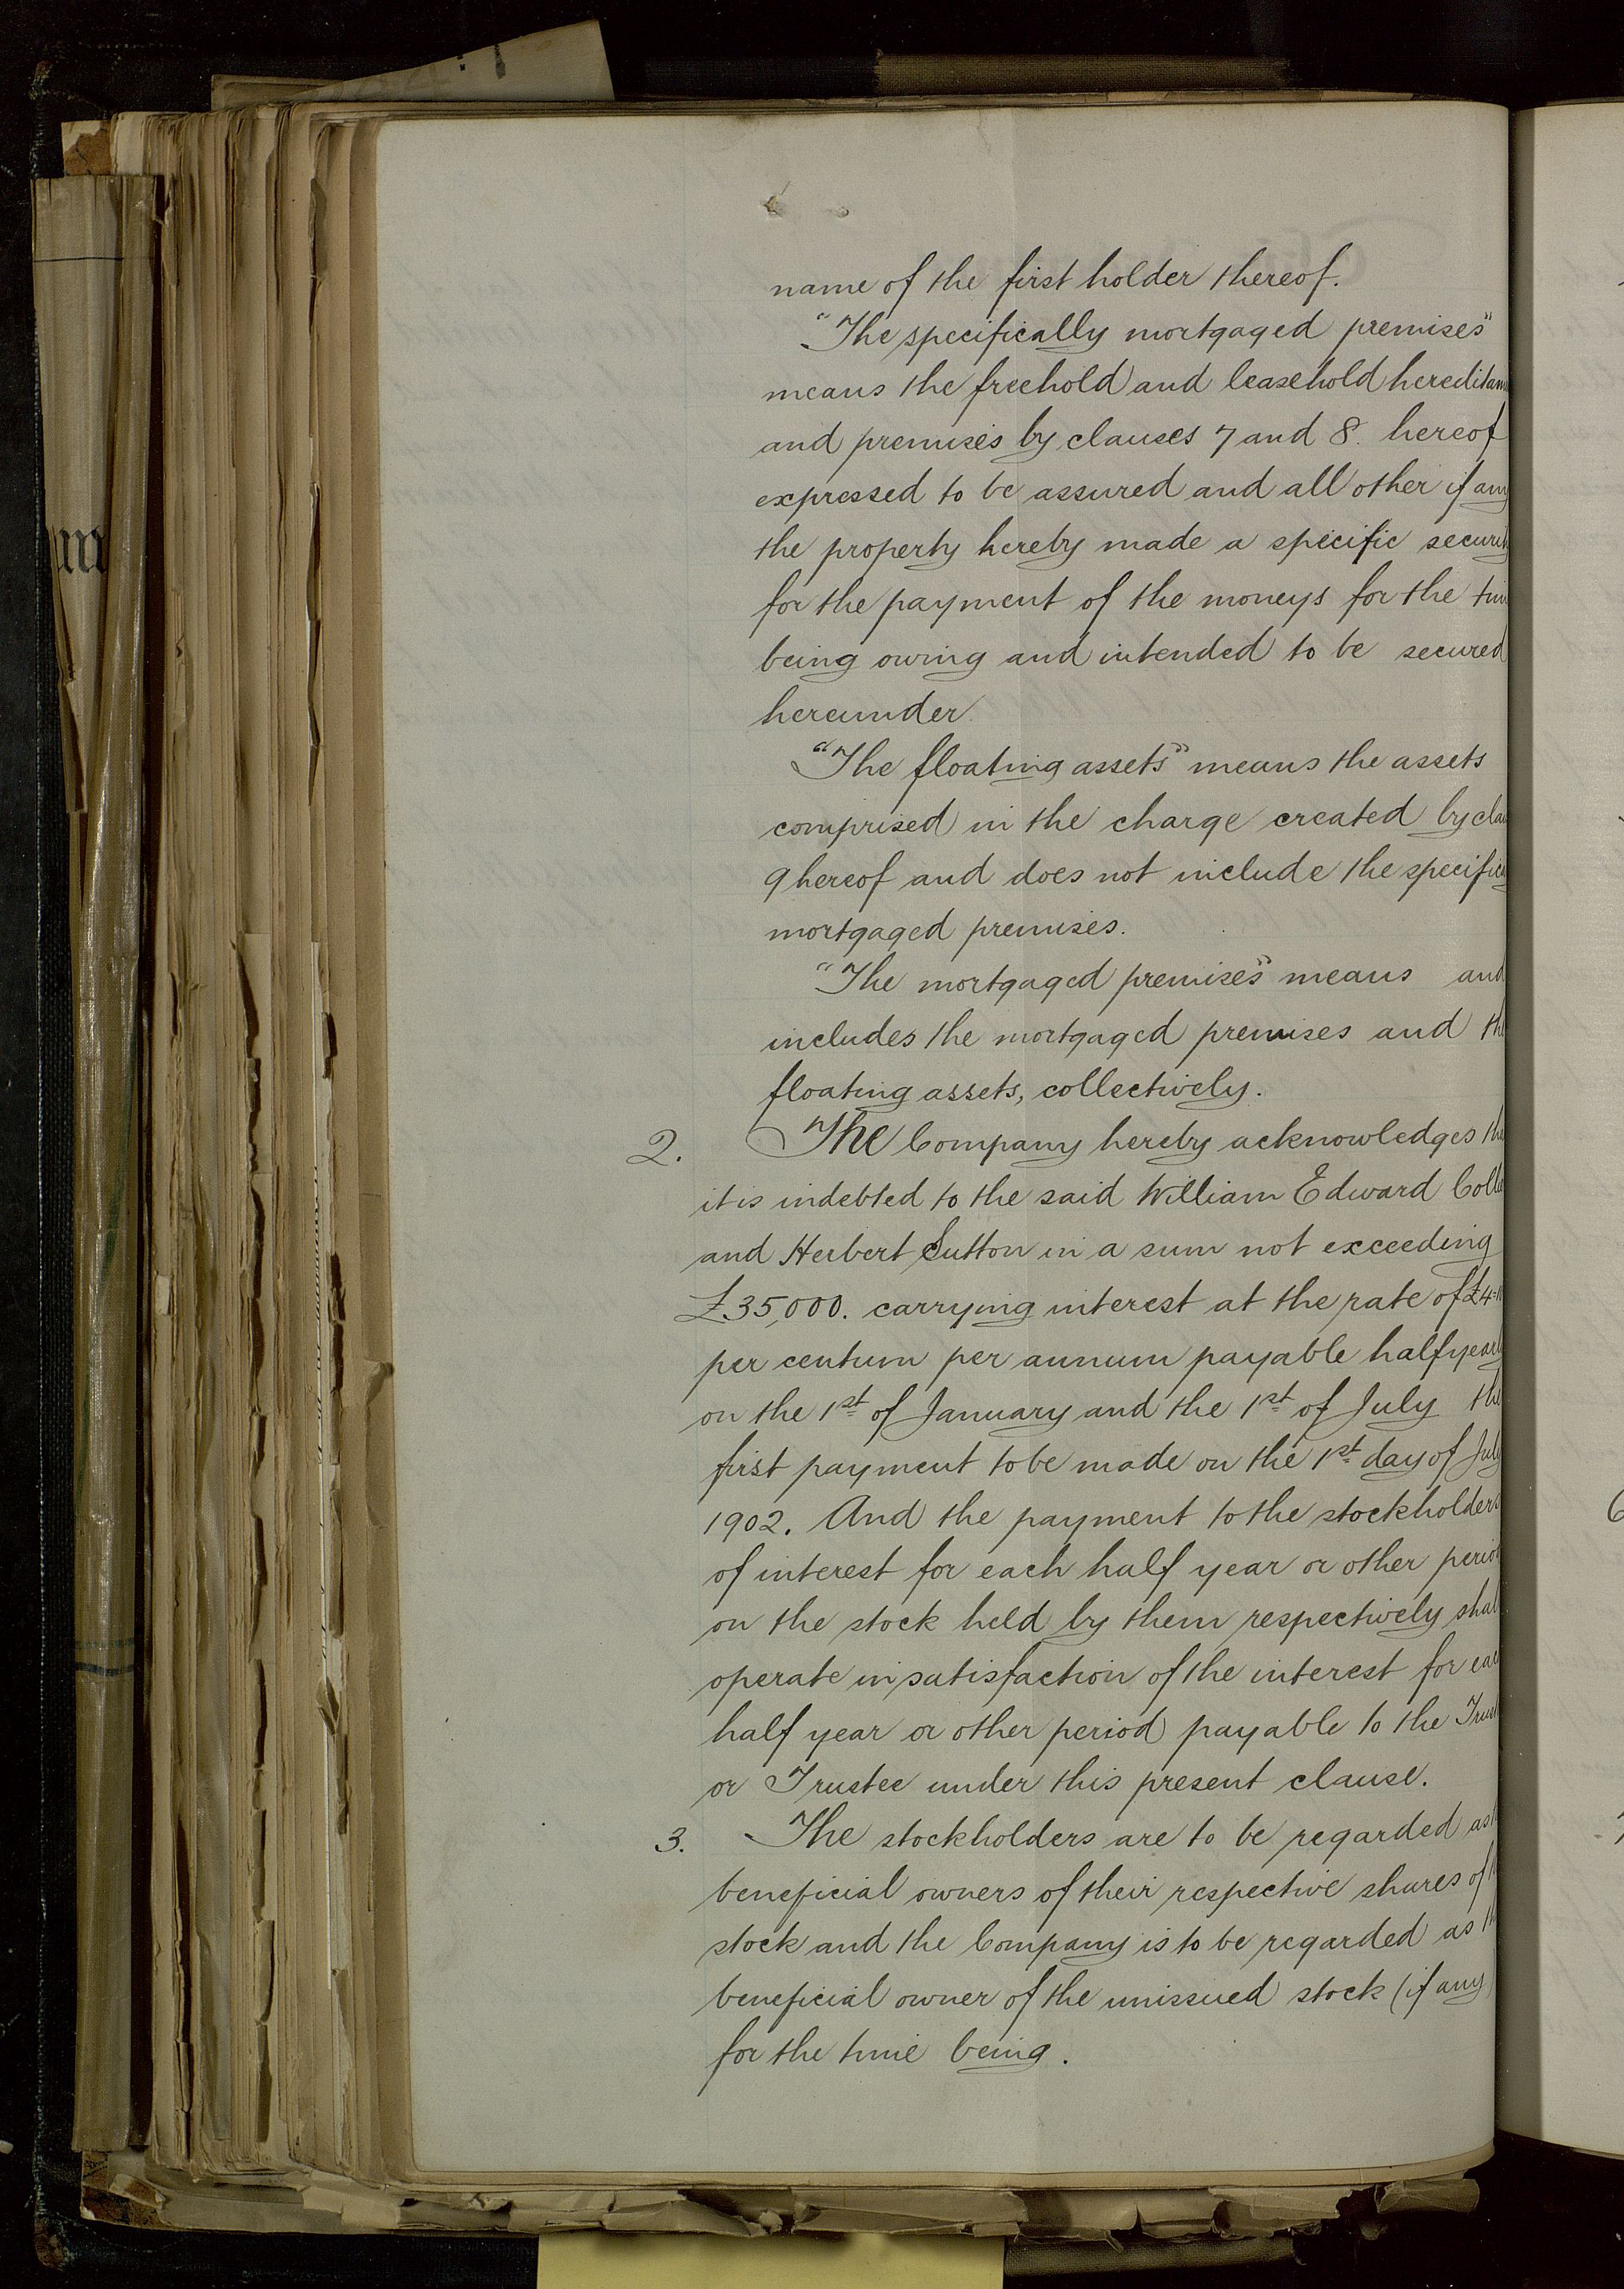 name of the first holder thereof.
"The specifically mortgaged premises"
means the freehold and leasehold hereditam
and premises by clauses 7 and 8. hereof
expressed to be assured and all other if any
the property hereby made a specific securit
for the payment of the moneys for the tim
being owing and intended to be secured
hereunder.
"The floating assets" means the assets
comprised in the charge created by clau
9 hereof and does not include the specifica
mortgaged premises.
"The mortgaged premises" means and
includes the mortgaged premises and the
floating assets, collectively.
2. The Company hereby acknowledges tha
it is indebted to the said William Edward Colle
and Herbert Sutton in a sum not exceeding
£35,000. carrying interest at the rate of £4
per centum per annum payable halfyearly
on the 1st of January and the 1st of July the
first payment to be made on the 1st day of July
1902. And the payment to the stockholders
of interest for each half year or other period
on the stock held by them respectively shal
operate in satisfaction of the interest for eac
half year or other period payable to the Trust
or Trustee under this present clause.
3. The stockholders are to be regarded as
beneficial owners of their respective shares of
stock and the Company is to be regarded as th
beneficial owner of the unissued stock (if any)
for the time being.